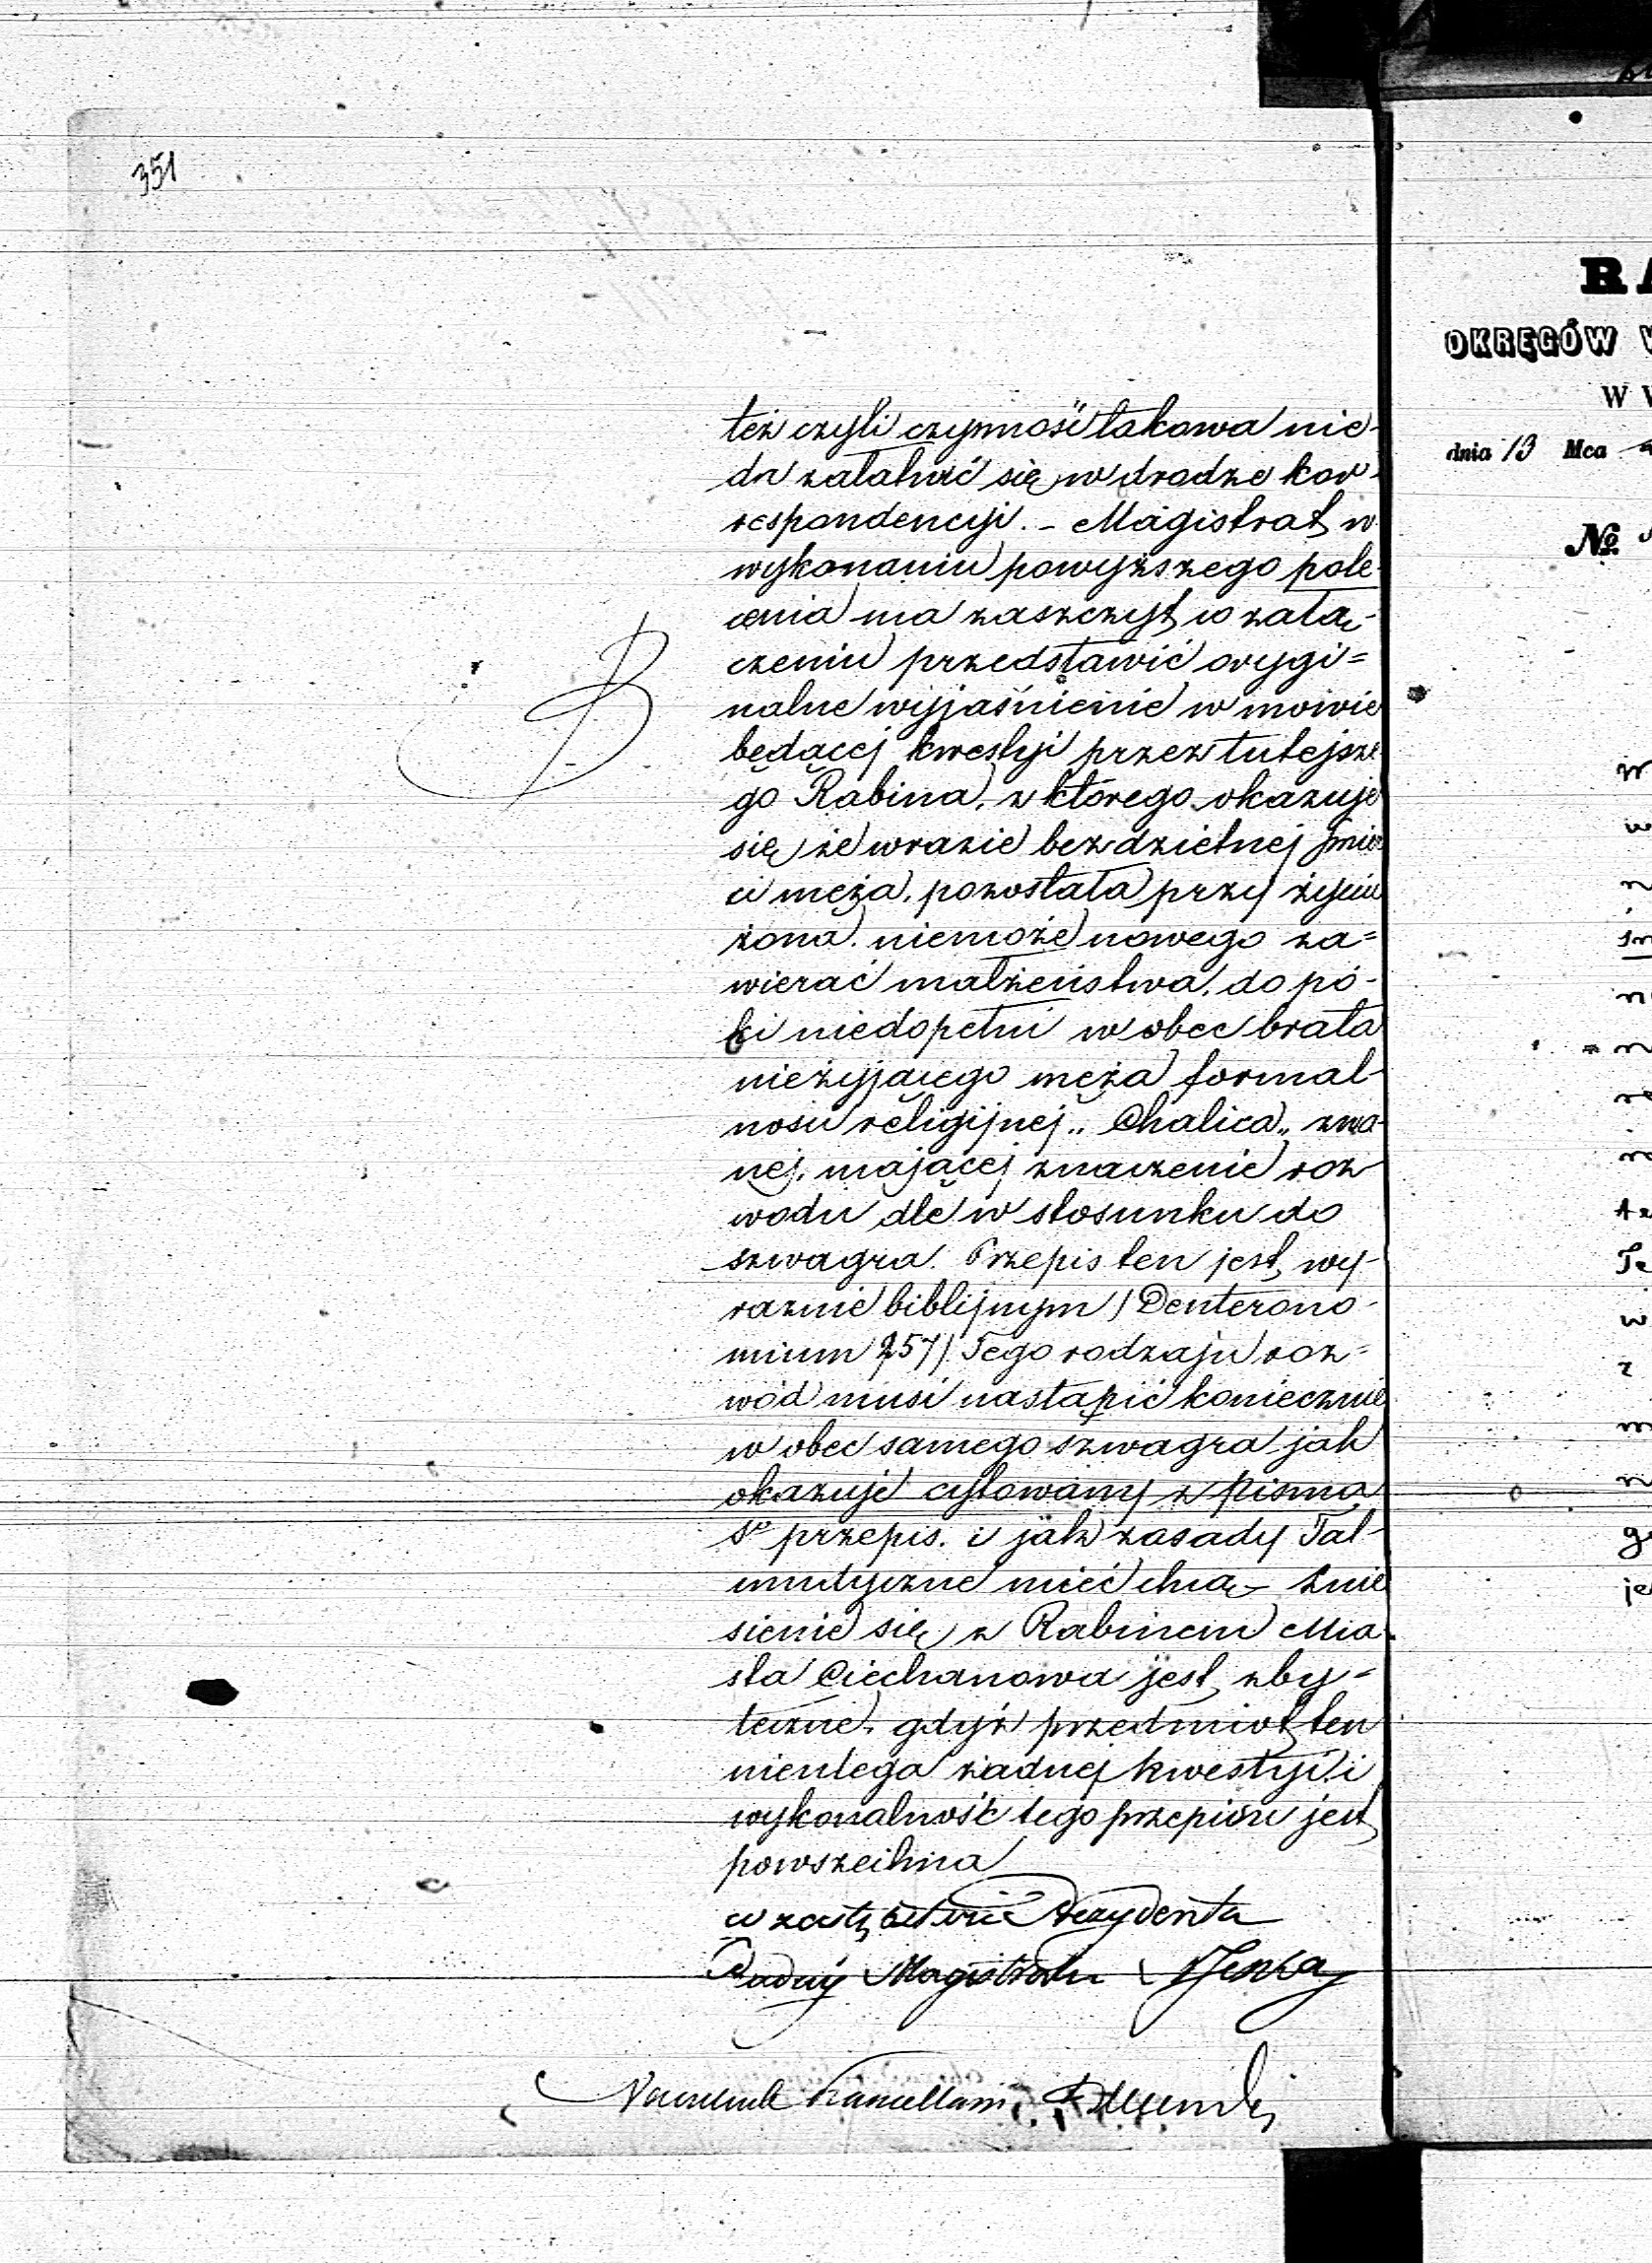 351
też czyli czynność takowa nie-
da załatwić się w drodze kor-
respondencyi. - Magistrat w
wykonaniu powyższego pole
cenia ma zaszczyt w załą-
czeniu przedstawić orygi=
nalne wyjaśnienie w mowie
będącej kwestyi przez tutejsze
go Rabina, z którego okazuje
się że wrazie bezdzietnej śmier
ci męża, pozostała przy życiu
żona niemoże nowego za=
wierać małżeństwa, do pó-
ki niedopełni w obec brata
nieżyjącego męża formal-
ności religijnej „ Chalica „ zwa-
nej, mającej znaczenie roz-
wodu ale w stosunku do
szwagra. Przepis ten jest wy-
raznie biblijnym / Deuterono-
mium 257/ Tego rodzaju roz=
wód musi nastąpić koniecznie
w obec samego szwagra jak
okazuje cytowany z Pisma
Sgo przepis. i jak zasady Tal-
mudyczne mieć chcą - Znie
sienie się z Rabinem Mia
sta Ciechanowa jest zby=
teczne, gdyż przedmiot ten
nieulega żadnej kwestyi i
wykonalność tego przepisu jest
powszechna
w zastępstwie Prezydenta
Radny Magistratu
Naczelnik Kancellarii
RA
OKRĘGÓW
W
dnia 13 Mca
№